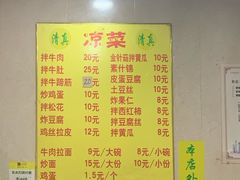 清真 凉菜 清真
拌牛肉 20元 金针菇拌黄瓜 10元
拌牛肚 25元 素什锦 10元
拌牛蹄筋 20元 皮蛋豆腐 10元
炒鸡蛋 10元 土豆丝 10元
拌松花 10元 炸果仁 8元
炸豆腐 10元 拌西红柿 8元
鸡丝拉皮 12元 拌豆腐丝 8元
拌黄瓜 8元
牛肉拉面 9元/大碗 8元/小碗
炒面 15元/大份 10元/小份
鸡蛋 1.5元/个
本店外